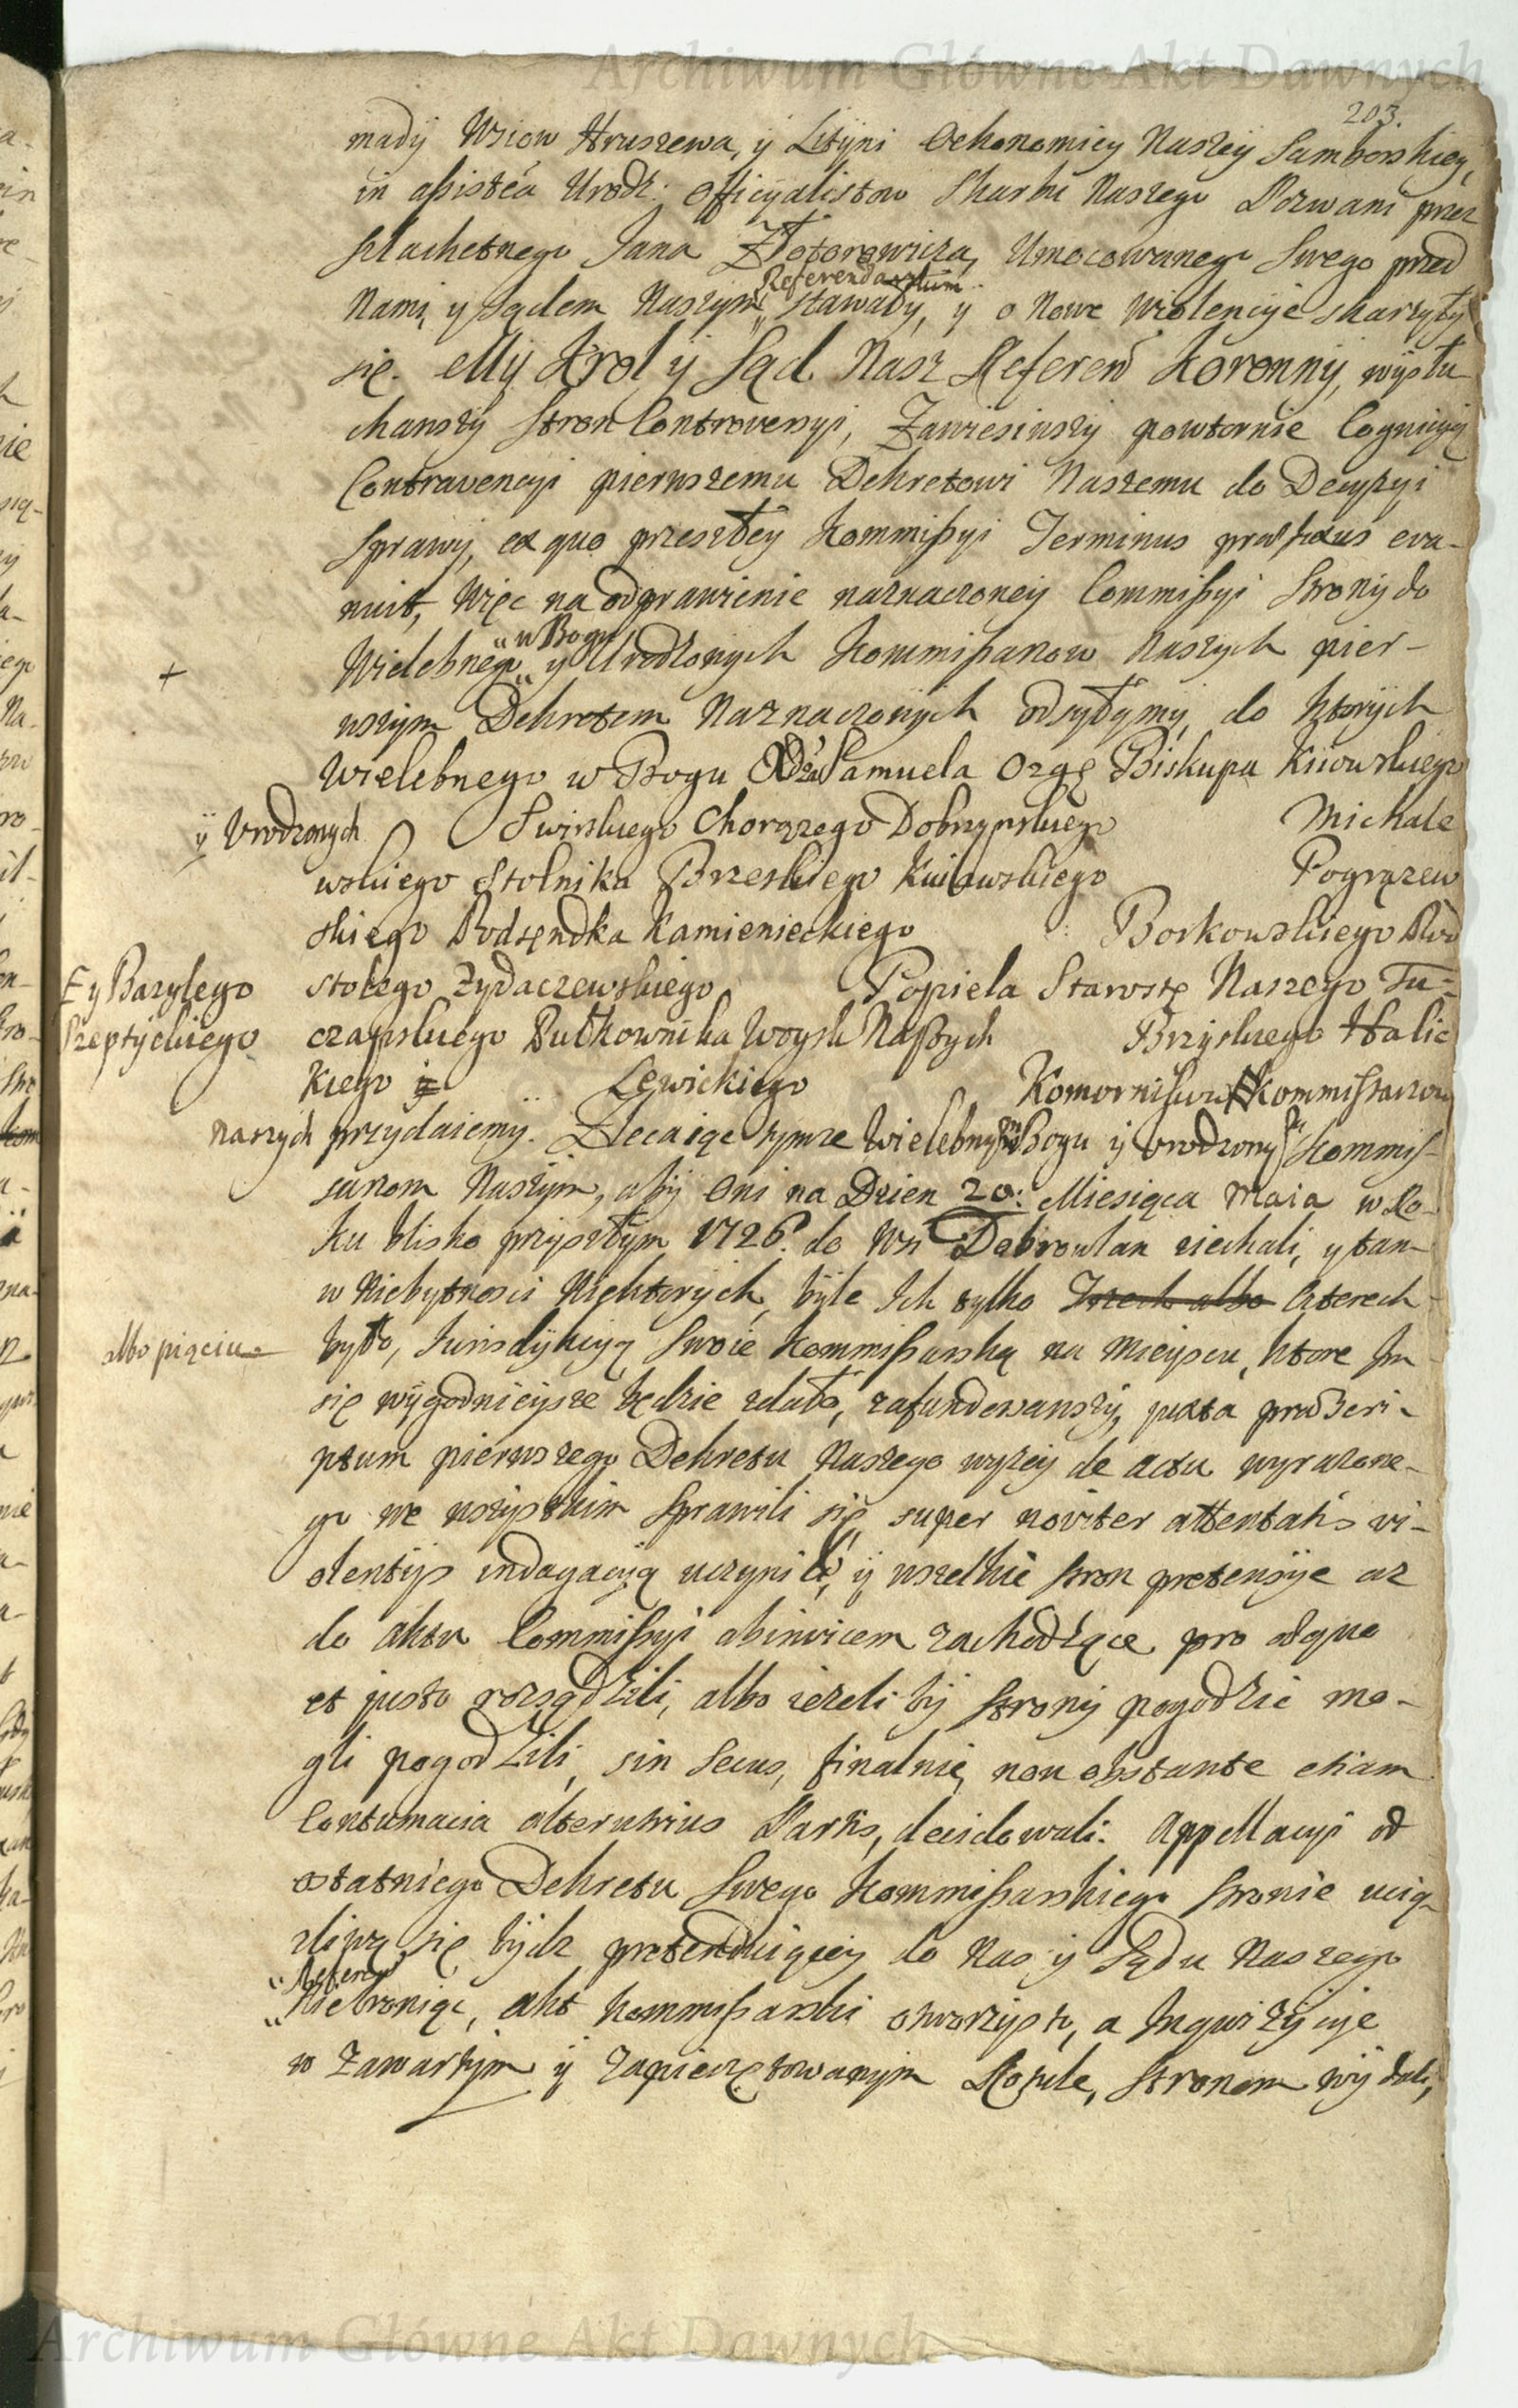 Archiwum Główne Akt Dawnych
203.
mady Wsiow Hruszewa, y Lityni Oekonomiey Naszey Samborskiey,
in assistēa Urodz. Officyalistow Skarbu Naszego Pozwani przez
szlachetnego Jana Złotorowicza, Umocowanego Swego przed
Referendarskim
Nami, y Sądem Naszym stawały, y o Nowe Violencye skarzyły
się. My Krol y Sąd Nasz Referen Koronny, wysłu-
chawszy stron Controversyi, Zawiesiwszy powtornie Cognicyą
Contravencyi pierwszemu Dekretowi Naszemu do Decyzyi
sprawy, ex quo przeszłey Kommissyi Terminus præfixus eva-
nuit, Więc na odprawienie naznaczoney Commissyi strony do
w Bogu
+ Wielebnego y Urodzonych Kommissarzow Naszych pier-
wszym Dekretem Naznaczonych odsyłamy, do ktorych
Wielebnego w Bogu Xdza Samuela Ozgę Biskupa Kiiowskiego
y Urodzonych Swirskiego Chorązego Dobrzynskiego Michale
wskiego Stolnika Brzeskiego Kuiawskiego Pogrązew
skiego Podsędka Kamienieckiego Borkowskiego Pod
stolego Zydaczewskiego Popiela Starostę Naszego Tu-
y Bazylego
Szeptyckiego
czapskiego Pułkownika Woysk Naszych Brzyskiego Halic
kiego Lewickiego Komornikow Kommissarzow
naszych przydaiemy. Zlecaiąc tymze Wielebnym w Bogu y Urodzonym Kommis-
sarzom Naszym, aby oni na Dzien 20. Miesiąca Maia w Ro-
ku blisko przyszłym 1726. do Wsi Dobrowlan ziechali, y tam
w Niebytnosci Niektorych, byle Ich tylko Trzech albo Czterech
albo pięciu
było, Jurisdykcyą Swoię Kommissarską na Mieyscu, ktore Im
się wygodnieysze będzie zdało, zafundowawszy, juxta præscri-
ptum pierwszego Dekretu Naszego wyzey de actu wyrazone-
go we wszystkim sprawili się, super noviter attentatis vi-
olentijs indagacyą uczynili, y wszelkie stron pretensye az
do aktu Commissyi abinvicem zachodzące pro æquo
et justo rozsądzili, albo iezeli by strony pogodzic mo-
gli pogodzili, sin secus, finalnie, non obstante etiam
Contumacia alterutrius Partis, decidowali. Appellacyi od
ostatniego Dekretu Swego Kommissarskiego stronie ucią-
zliwą się bydz pretenduiącey do Nas y Sądu Naszego
Referen
Niebroniąc, akt Kommissarski otworzysty, a Inqwizycye
w Zawartym y zapieczętowanym Rotule, stronom wydali,
Archiwum Główne Akt Dawnych